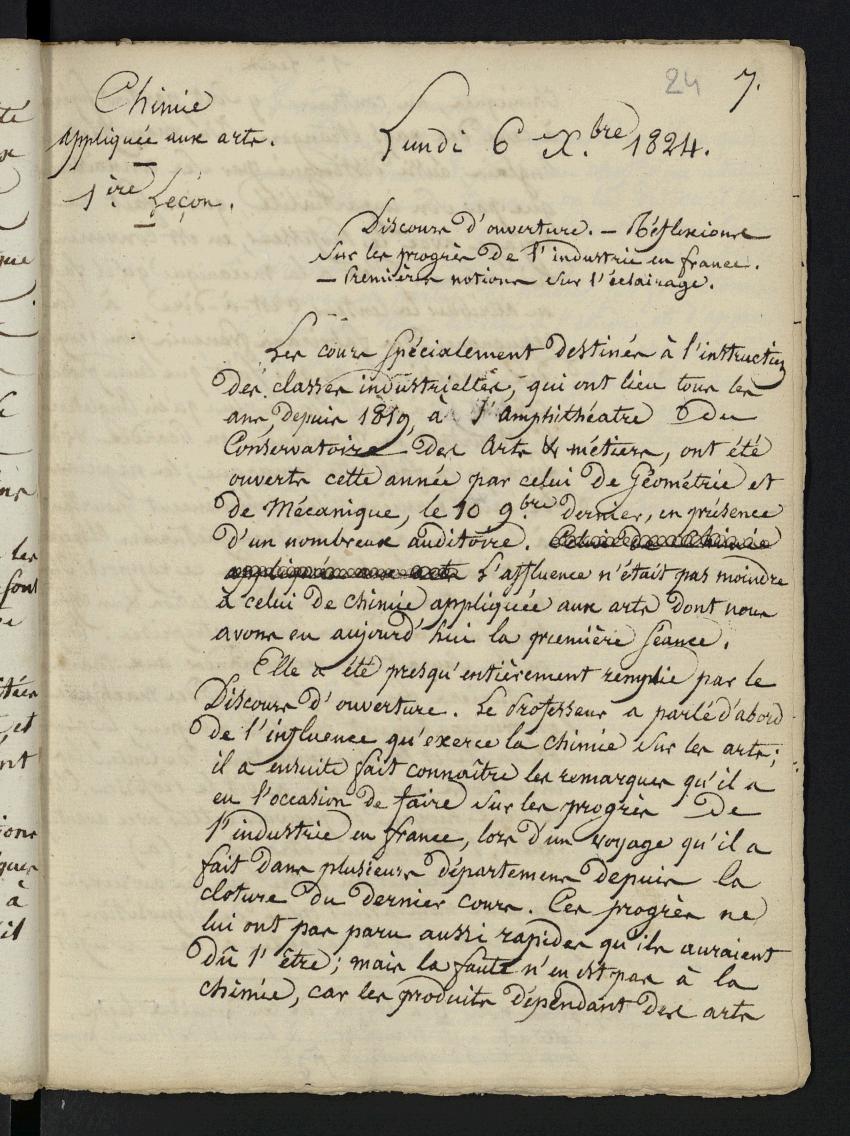 24 7.
Chimie
appliquée aux arts.
Lundi 6 X.bre 1824.
1.ère Leçon.
Discours d'ouverture. — Réflexions
sur les progrès de l'industrie en france.
— Premières notions sur l'éclairage.
Les cours spécialement destinés à l'instruction
des classes industrielles, qui ont lieu tous les
ans, depuis 1819, à l'Amphithéatre du
Conservatoire des Arts & métiers, ont été
ouverts cette année par celui de Géométrie et
de Mécanique, le 10 9.bre dernier, en présence
d'un nombreux auditoire. Celui de Chimie
appliquée aux arts L'affluence n'était pas moindre
à celui de chimie appliquée aux arts dont nous
avons eu aujourd'hui la première séance.
Elle a été presqu'entièrement remplie par le
Discours d'ouverture. Le Professeur a parlé d'abord
de l'influence qu'exerce la chimie sur les arts;
il a ensuite fait connaître les remarques qu'il a
eu l'occasion de faire sur les progrès de
l'industrie en france, lors d'un voyage qu'il a
fait dans plusieurs départemens depuis la
cloture du dernier cours. Ces progrès ne
lui ont pas paru aussi rapides qu'ils auraient
dû l'être; mais la faute n'en est pas à la
chimie, car les produits dépendant des arts